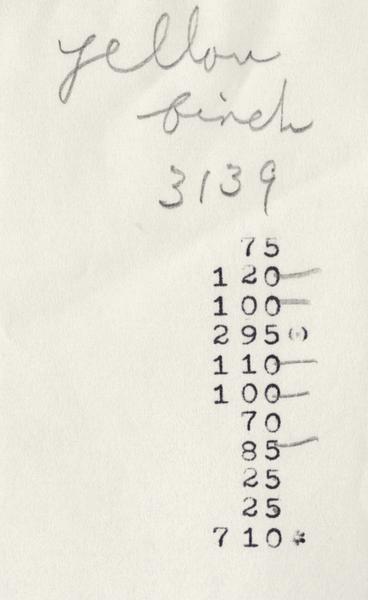 yellow
birch
3139
75
120
100
295 (·)
110
100
70
85
25
25
710 *